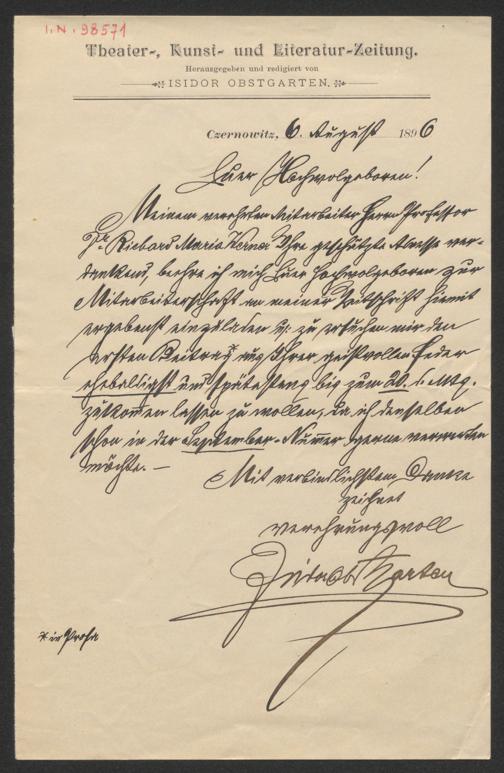 I.N. 98571
Theater-, Kunst- und Literatur-Zeitung.
Herausgegeben und redigiert von
ISIDOR OBSTGARTEN.
Czernowitz, 6. August 1896
Euer Hochwolgeboren!
Meinem verehrten Mitarbeiter Herrn Professor
Dr. Richard Maria Werner Ihre geschätzte Adresse ver-
dankend, beehre ich mich Euer Hochwolgeboren zur
Mitarbeiterschaft an meiner Zeitschrift hiemit
ergebenst einzuladen u. zu ersuchen mir den
ersten Beitrag* aus Ihrer geistvollen Feder
ehebaldigst und spätestens bis zum 20. l. Mts.
zukommen lassen zu wollen, da ich denselben
schon in der September-Nummer gerne verwerten
möchte. –
Mit verbindlichstem Danke
zeichnet
verehrungsvoll
Isid. Obstgarten
* in Prosa